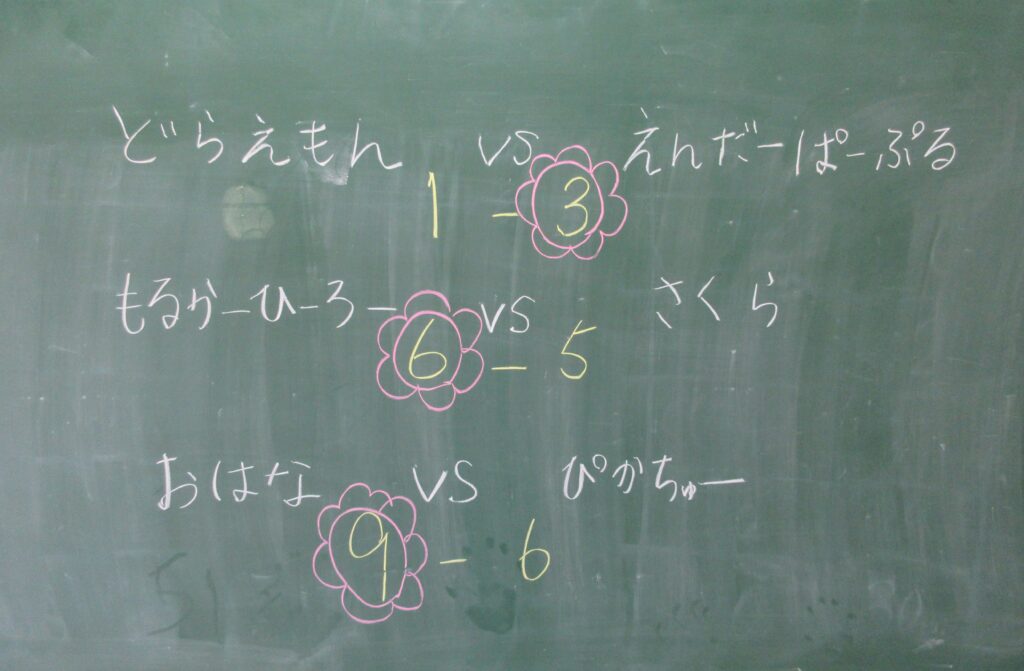 どらえもん vs えんだーぱーぷる
1 - 3
もるかーひーろー vs さくら
6 - 5
おはな vs ぴかちゅー
9 - 6